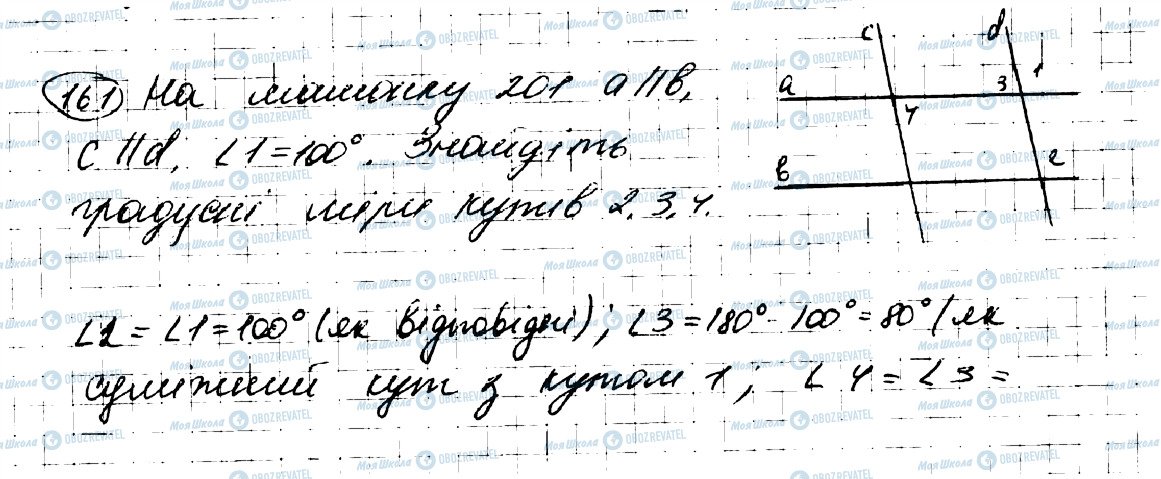 161) На малюнку 201 a||b,
c||d, ∠1=100°. Знайдіть
градусні міри кутів 2, 3, 4.
c d
a 3 1
4
b 2
∠2 = ∠1 = 100° (як відповідні); ∠3 = 180° - 100° = 80° (як
суміжний кут з кутом 1; ∠4 = ∠3 =